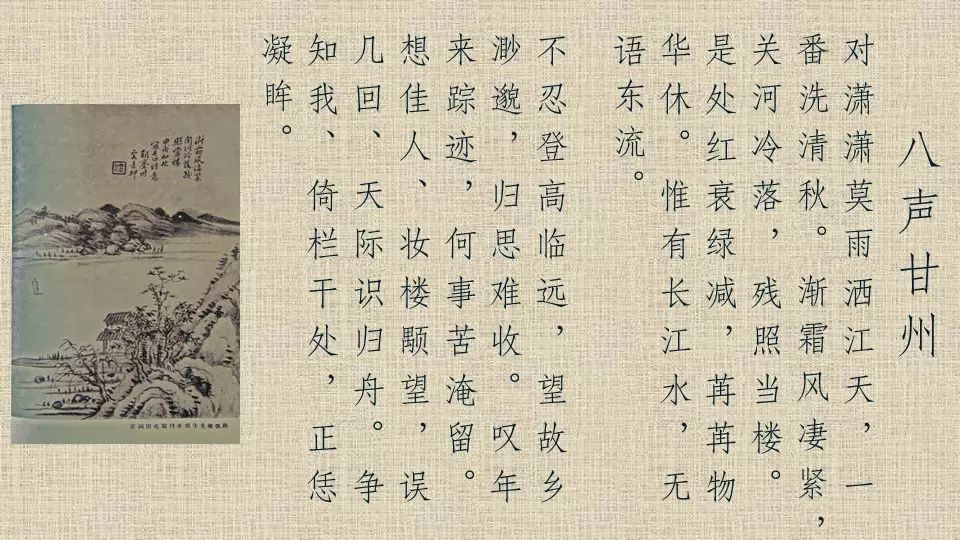 八声甘州
对潇潇莫雨洒江天，一
番洗清秋。渐霜风凄紧，
关河冷落，残照当楼。
是处红衰绿减，苒苒物
华休。惟有长江水，无
语东流。
不忍登高临远，望故乡
渺邈，归思难收。叹年
来踪迹，何事苦淹留。
想佳人、妆楼颙望，误
几回、天际识归舟。争
知我、倚栏干处，正恁
凝眸。